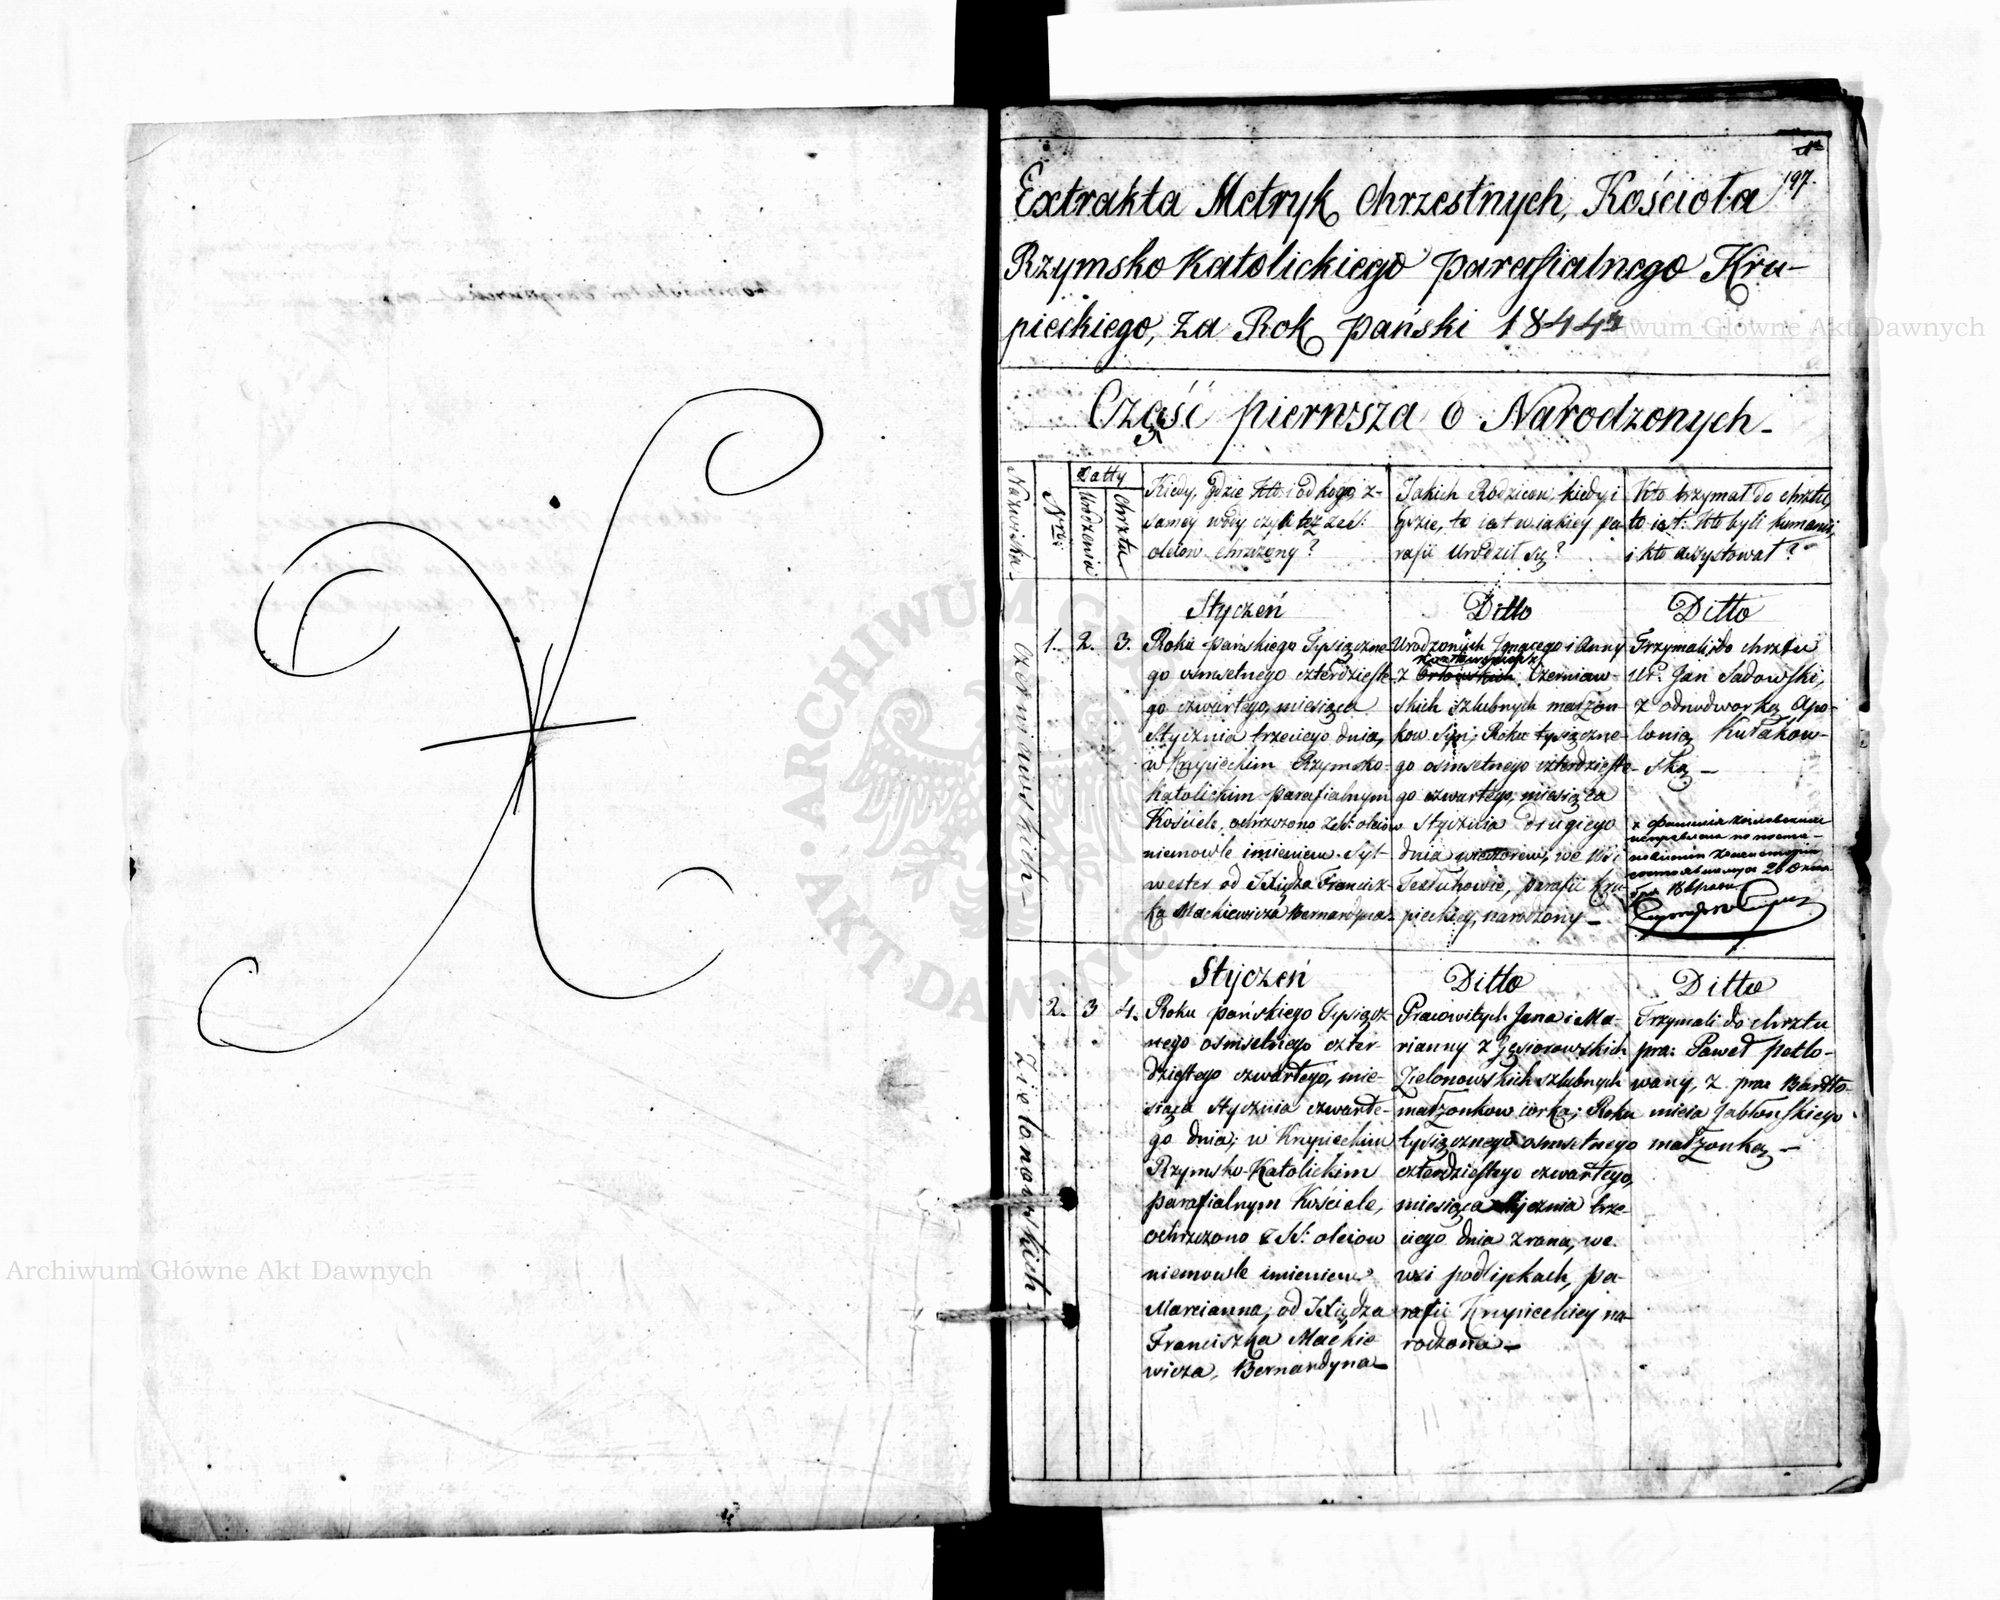 197.
Extrakta Metryk Chrzestnych, Kościoła
Rzymsko Katolickiego parafialnego Kru-
pieckiego, za Rok pański 1844
Część pierwsza o Narodzonych
Nazwiska
Nra
Datty
Urodzenia
Chrztu
Kiedy, gdzie kto i od kogo, z
samey wody czyli też ze S:
oleiow chrzczony?
Jakich Rodzicow, kiedy i
gdzie, to iest w iakiey pa
rafii urodził się?
Kto trzymał do chrztu,
to iest: kto byli kumami,
i kto assystował?
Styczeń
Ditto
Ditto
Czerniawskich
1. 2. 3.
Roku pańskiego Tysiączne
go osmsetnego czterdzieste-
go czwartego, miesiąca
Stycznia trzeciego dnia,
w Krupieckim Rzymsko-
katolickim parafialnym
Kościele, ochrzczono z S: oleiow
niemowle imieniem Syl-
wester od Xiędza Francisz-
ka Mackiewicza Bernardyna
Urodzonych Ignacego i Anny
z Czerniaw-
skich szlubnych małżon
kow Syn; Roku tysiączne-
go osmsetnego czterdzieste-
go czwartego, miesiąca
Stycznia drugiego
dnia wieczorem, we wsi
parafii Kru-
pieckiey, narodzony
Trzymali do chrztu
Ur: Jan Sadowski,
z odnodworką Apo-
lonią Kułakow-
ską
Styczeń
Ditto
Ditto
Zielonowskich
2. 3 4.
Roku pańskiego Tysiącz-
nego osmsetnego czter-
dziestego czwartego, mie-
siąca Stycznia czwarte-
go dnia; w Krupieckim
Rzymsko-Katolickim
parafialnym Kościele,
ochrzczono z S: oleiow
niemowle imieniem
Marcianna, od Xiędza
Franciszka Mackie
wicza, Bernardyna
Pracowitych Jana i Ma-
rianny z Gąsiorowskich
Zielonowskich szlubnych
małżonkow córka; Roku
tysiącznego osmsetnego
czterdziestego czwartego,
miesiąca Stycznia trze-
ciego dnia z rana, we
wsi podlipkach, pa-
rafii Krupieckiey na-
rodzona
Trzymali do chrztu
pra: Paweł
z prac Bartło-
mieia Jabłońskiego
małżonką
Archiwum Główne Akt Dawnych
Archiwum Główne Akt Dawnych
ARCHIWUM GŁÓWNE AKT DAWNYCH